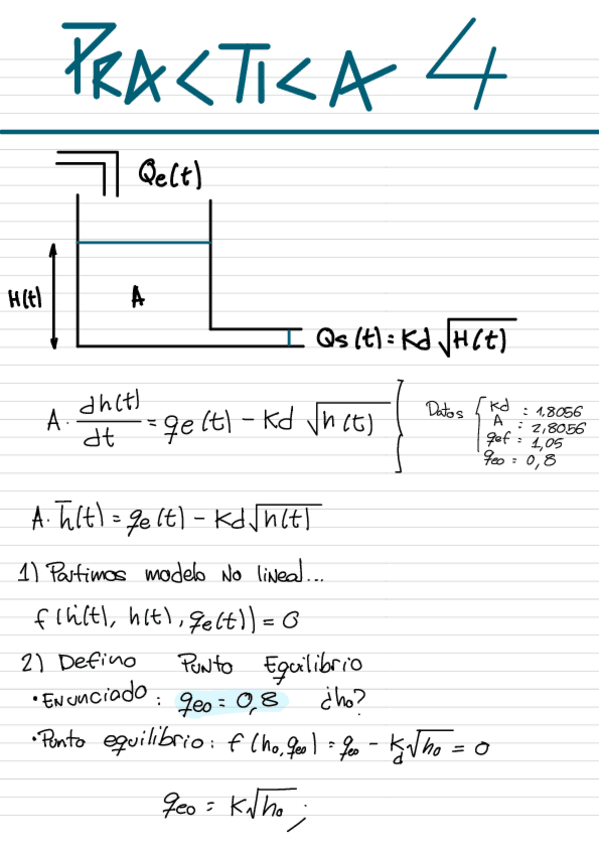 PRACTICA 4
Qe(t)
H(t)
A
Qs(t) = Kd √H(t)
A · dh(t)/dt = qe(t) - Kd √h(t)
Datos
Kd : 1,8056
A : 2,8056
qef = 1,05
qeo = 0,8
A · h̄(t) = qe(t) - Kd √h(t)
1) Partimos modelo No lineal...
f(ḣ(t), h(t), qe(t)) = 0
2) Defino Punto Equilibrio
• Enunciado : qeo = 0,8 ¿ho?
• Punto equilibrio : f(ho, qeo) = qeo - Kd √ho = 0
qeo = K√ho ;